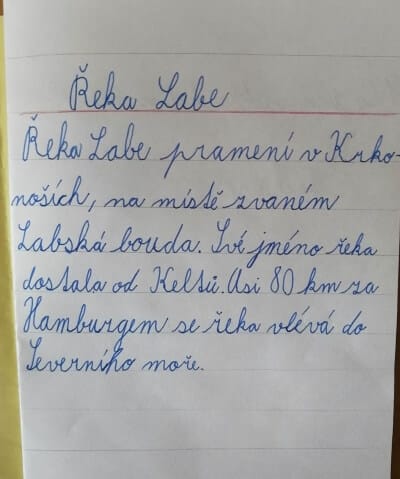 Řeka Labe
Řeka Labe pramení v Krko-
noších, na místě zvaném
Labská bouda. Své jméno řeka
dostala od Keltů. Asi 80 km za
Hamburgem se řeka vlévá do
Severního moře.